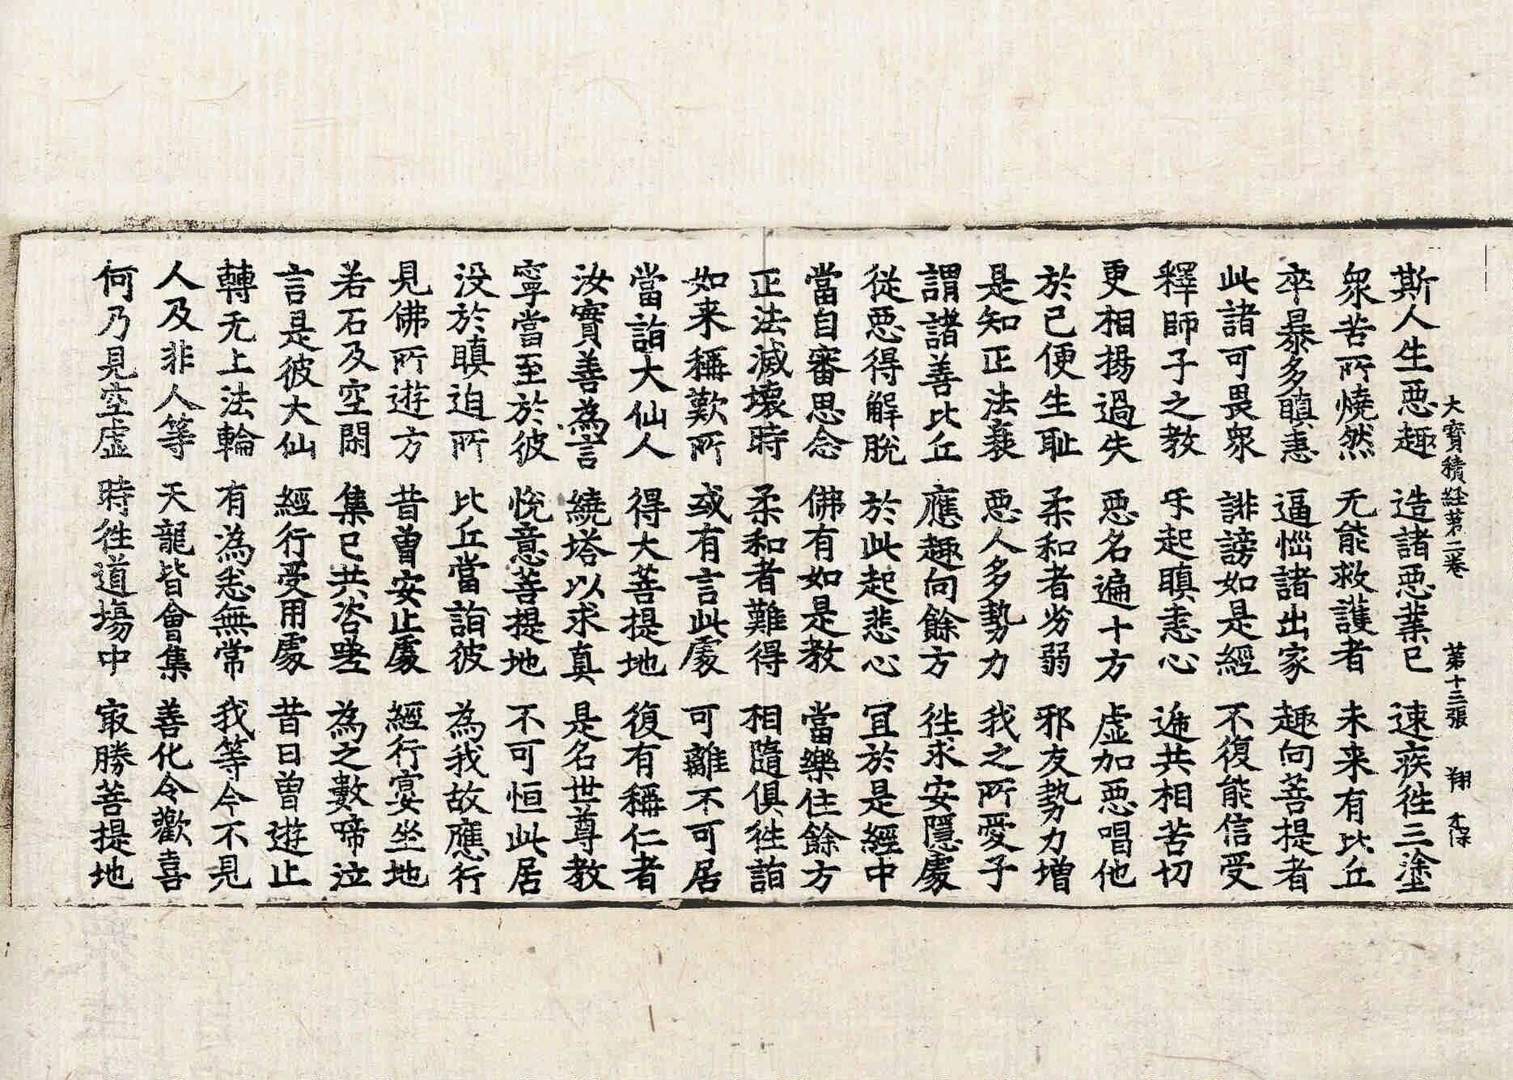 大寳積経苐二卷 第十三張 翔 才保
斯人生惡趣 造諸惡業已 速疾徃三塗
衆苦所燒然 无能救護者 未来有比丘
卒暴多瞋恚 逼惱諸出家 趣向菩提者
此諸可畏衆 誹謗如是經 不復能信受
釋師子之教 乐起瞋恚心 遞共相苦切
更相揚過失 惡名遍十方 虚加惡唱他
於已便生耻 柔和者劣弱 邪友勢力增
是知正法衰 惡人多勢力 我之所愛子
謂諸善比丘 應趣向餘方 徃求安隱處
從惡得解脫 於此起悲心 冝於是經中
當自審思念 佛有如是教 當樂住餘方
正法滅壞時 柔和者難得 相隨俱徃詣
如来稱歎所 或有言此處 可離不可居
當詣大仙人 得大菩提地 復有稱仁者
汝實善為言 繞塔以求真 是名世尊教
寧當至於彼 悅意菩提地 不可恒此居
没於瞋迫所 比丘當詣彼 為我故應行
見佛所遊方 昔曾安止處 經行宴坐地
若石及空閑 集已共咨嗟 為之數啼泣
言是彼大仙 經行受用處 昔日曾遊止
轉无上法輪 有為悉無常 我等今不見
人及非人等 天龍皆會集 善化令歡喜
何乃見空虛 時徃道塲中 㝡勝菩提地